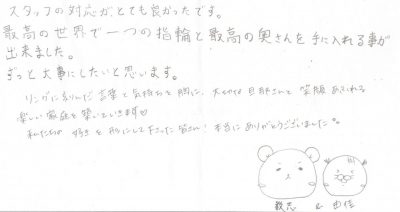 スタッフの対応がとても良かったです。
最高の世界で一つの指輪と最高の奥さんを手に入れる事が
出来ました。
ずっと大事にしたいと思います。
リングに刻んだ言葉と気持ちを胸に、大切な旦那さんと笑顔あふれる
楽しい家庭を築いていきます♡
私たちの好きを形にして下さった皆さん!本当にありがとうございました。
&